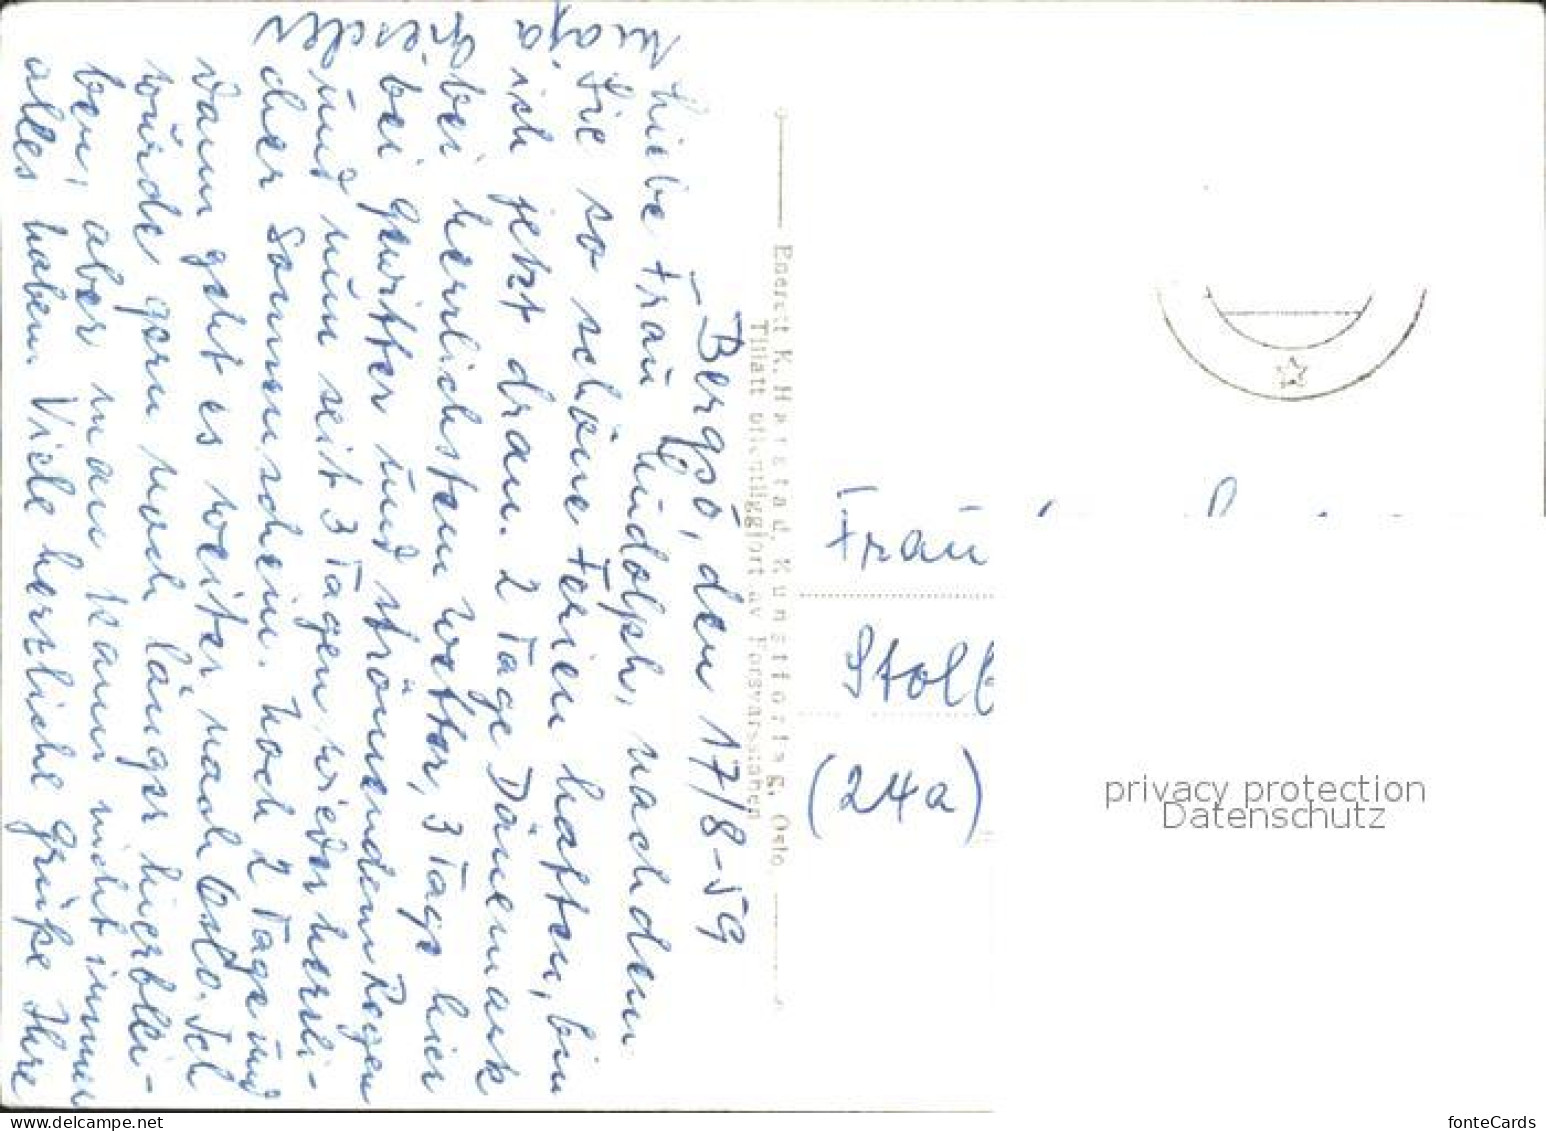 Bergsö, den 17/8-59
Liebe Frau Ludolph, nachdem
Sie so schöne Ferien hatten, bin
ich jetzt dran. 2 Tage Dänemark
bei herrlichstem Wetter, 3 Tage hier
bei Gewitter und strömendem Regen
und nun seit 3 Tagen wieder herrli-
cher Sonnenschein. Noch 2 Tage und
dann geht es weiter nach Oslo. Ich
würde gern noch länger hierblei-
ben, aber man kann nicht immer
alles haben. Viele herzliche Grüße Ihre
Enerett K. Harstad, Kunstforlag, Oslo.
Tillatt offentliggjort av Forsvarsstaben
Frau
Stolb
(24a)
privacy protection
Datenschutz
fonteCards